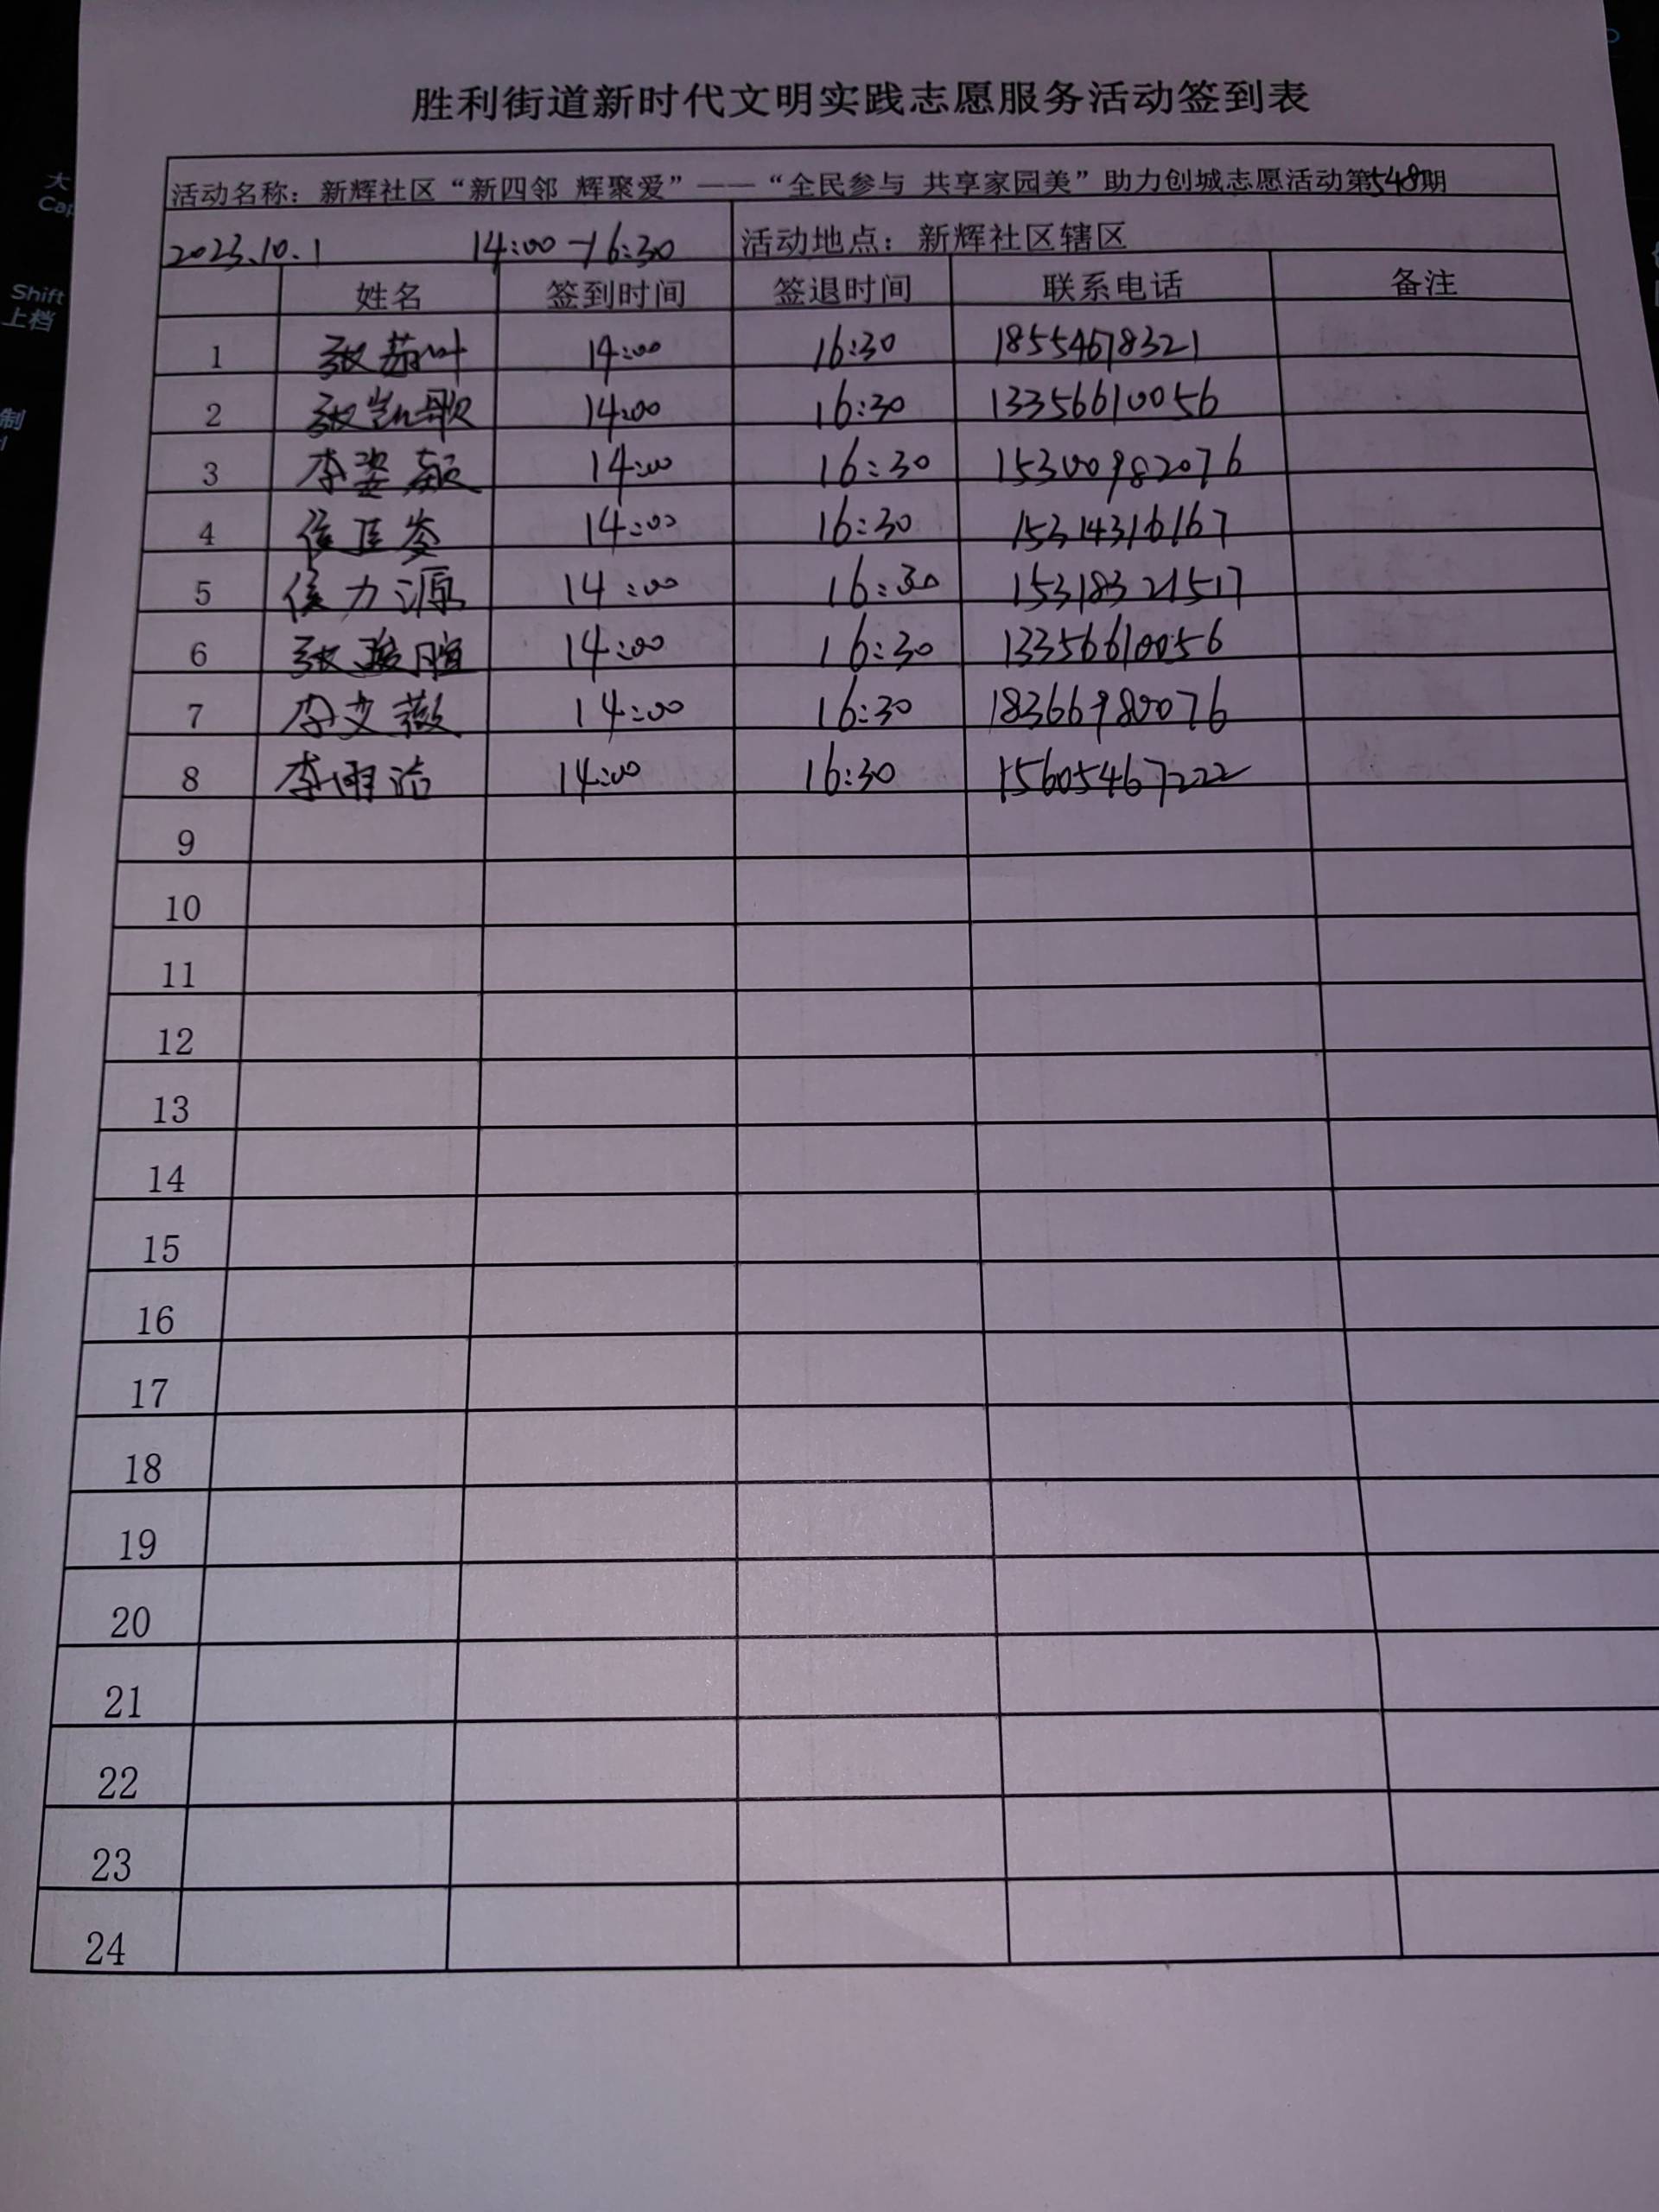 胜利街道新时代文明实践志愿服务活动签到表
活动名称：新辉社区“新四邻 辉聚爱”——“全民参与 共享家园美”助力创城志愿活动第548期
2023.10.1 14:00-16:30 活动地点：新辉社区辖区
姓名 签到时间 签退时间 联系电话 备注
1 张茹叶 14:00 16:30 18554678321
2 张凯歌 14:00 16:30 13356610056
3 李姿颖 14:00 16:30 15300982076
4 侯岑 14:00 16:30 15314316167
5 侯力源 14:00 16:30 15318321517
6 张 14:00 16:30 13356610056
7 李艾薇 14:00 16:30 18366980076
8 李雨洁 14:00 16:30 15605467222
9
10
11
12
13
14
15
16
17
18
19
20
21
22
23
24
大
Cap
Shift
上档
制